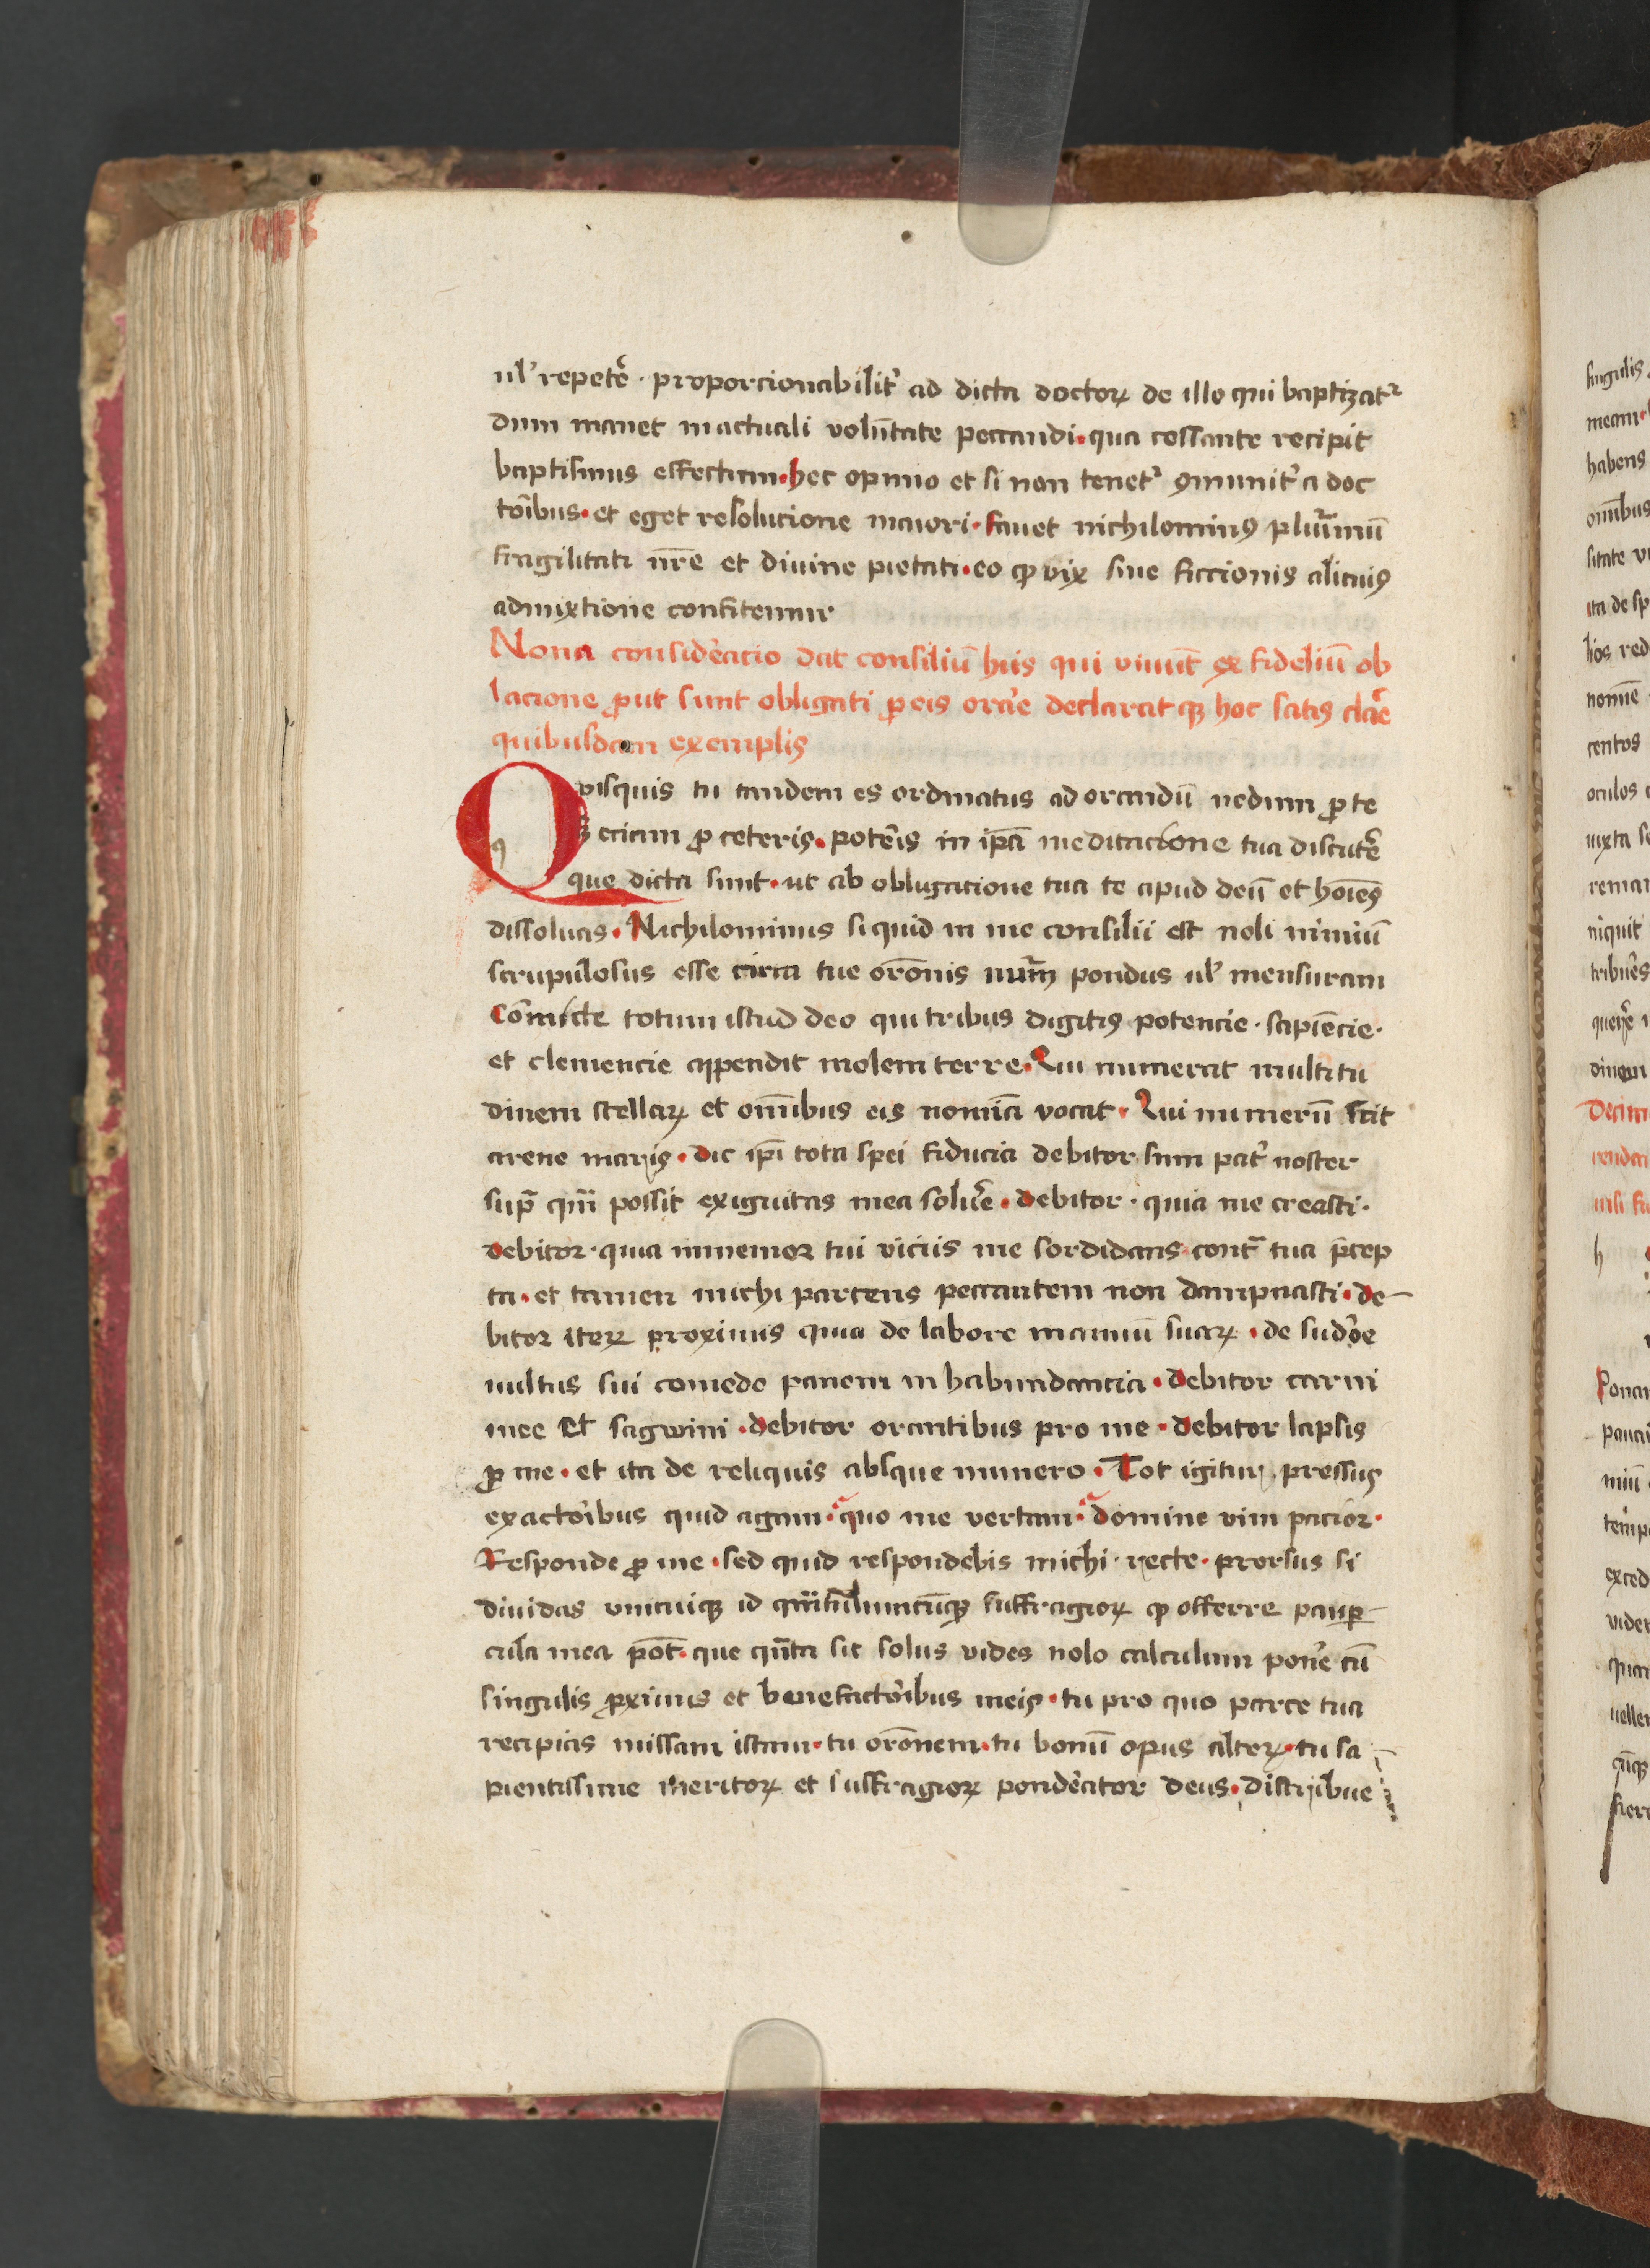 ul̕ repetẽ · proporcionabilit̕ ad dicta doctoꝝ de illo qui baptizat᷑
dum manet in actuali volũtate peccandi · qua cessante recipit
baptismus effectum · hec opinio et si non tenet᷑ ꝯmunit̕ a doc
toĩbus · et eget resolucione maiori · fauet nichilominꝰ plurimũ
fragilitati nr̃e et diuine pietati · eo ꝙ vix sine ficcionis alicuiꝰ
admixtione confitemur
Nona consideãcio dat consiliũ hiis qui viuũt ex fideliũ ob
lacione ꝓut sunt obligati ꝓ eis oraẽ declarat qꝫ hoc satis claẽ
quibusdam exemplis
Qvisquis tu tandem es ordinatus ad orandũ nedum ꝓ te
ꝫ eciam ꝓ ceteris · poteĩs in ip̃a meditacione tua discutẽ
que dicta sunt · ut ab obligacione tua te apud deũ et hoĩes
dissoluas · Nichilominus si quid in me consilii est noli nimiũ
scrupulosus esse circa tue orõnis nũm pondus ul̕ mensuram
Cõmicte totum istud deo qui tribus digitis potencie · sapiẽcie ·
et clemencie appendit molem terre · Qui numerat multitu
dinem stellaꝝ et om̃ibus eis nomĩa vocat · Qui numerũ scit
arene maris · dic ip̃i tota spei fiducia debitor sum pat̕ noster
sup̃ qm̃ possit exiguitas mea soluẽ · debitor · quia me creasti ·
debitor · quia inmemor tui viciis me sordidans cont̃ tua p̃cep
ta · et tamen michi parcens peccantem non dampnasti · de
bitor iteꝝ proximis quia de labore manuũ suaꝝ · de sudõe
uultus sui comedo panem in habundancia · debitor carni
mee et sagwini · debitor orantibus pro me · debitor lapsis
ꝓ me · et ita de reliquis absque numero · Tot igitur pressus
exactoĩbus quid agam · quo me vertam · domine vim pacior ·
Responde ꝓ me · sed quid respondebis michi · recte · prorsus si
diuidas vnicuiqꝫ id suffragioꝝ ꝙ offerre pauꝑ
cula mea põt · que qñta sit solus vides nolo calculum ponẽ cũ
singulis ꝓximis et benefactoĩbus meis · tu pro quo parce tua
recipias missam istam · tu orõnem · tu bonũ opus alteꝝ · tu sa
pientissime meritoꝝ et suffragioꝝ pondeãtor deus · distribue